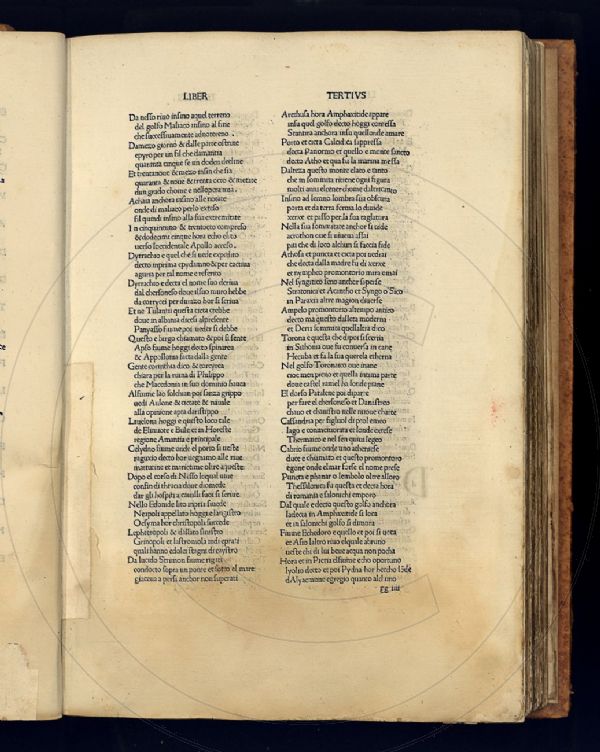 LIBER
TERTIVS
Da nesso riuo insino aquel terreno
del golfo Maliaco insino al fine
che successiuamente adiro terreno
Damezo giorno & dalle parte
epyro per un fil che damanita
quaranta cinque se un doden decline
Et trentanoue & mezo insin che sia
quaranta & noue & trenta octo & metate
dun grado chome e nellopera mia
Achaia anchora insino alle notate
onde di maliaco per lo extiso
fil quindi insino alla sua extremitate
In cinquantuno & trentocto compreso
& dodecim cinque hora echo el sto
uerso loccidentale Apollo acceso
Dyrrachio e quel che si uede expedito
decto inprima epydamno & per cactiua
aguria per tal nome e referito
Dyrrachio e decta el nome suo deriua
dal chersoneso doue il suo muro hebbe
da corcyrei per durazo hor si scriua
Et ne Tulanti questa cicta crebbe
doue in albania dicesi alpresente
Panyasso fiume poi ueder si debbe
Questo e bargo chiamato & poi si sente
Apso fiume hoggi decto spinarca
& Appollonia facta dalla gente
Gente corinthia dico & corcyrea
chiara per la ruina di Philippo
che Macedonia in suo dominio hauea
Alfiume lao solchun poi sanza grippo
uedi Aulone & cictate & nauale
alla opinione apta daristippo
Lauelona hoggi e questo loco tale
de Elimiote e Bulie et in Horeste
regione Amantia e principale
Celydno fiume onde el porto si ueste
rigucio decto hor uegnamo alle riue
matutine et maritime oltre a queste
Dopo el corso di Nesso lequal uiue
confin di thracia doue diomede
dar gli hospiti a caualli suoi si scriue
Nello Edonide lito inpria succede
Nerpoli appellato hoggi e langistro
Oesyma hor christopoli succede
Lephtripoli & dillato sinistro
Grinopoli et lastromola indi epirati
quali hanno edolci stagni di caystro
Da lacido Strimon fiume rigati
condocto sopra un ponte et sotto el mare
giacino a persi anchor non superati
Arethusa hora Amphaxitide appare
insu quel golfo decto hoggi contessa
Stratira anchora insu quellonde amare
Porto et cicta Calcidica sappressa
decta Panormo et quello e monte sancto
decto Atho et qua fu la marina messa
Dalteza questo monte elato e tanto
che in sommita ritiene ogni figura
molti anni elcener chome dal canto
Insino ad lemno lombra sua obscura
porta et da terra ferma lo diuide
xerxe et passo per la sua tagliatura
Nella sua sommitate anchor si uide
acrothon que si uiueua assai
piu che di loco alchun si faccia fide
Athosa et puncta et cicta poi uedrai
che decta dalla madre fu di xerxe
et nympheo promontorio mira omai
Nel syngitico seno anchor si perse
Stratonica et Acantho et Syngo o Sico
in Paraxia altre magion diuerse
Ampelo promontorio altempo antico
decto ma questo dalleta moderna
et Derri sommita quellaltra dico
Torona e questa che dipoi si scerna
in Sithonia que fu conuersa in cane
Hecuba et fa la sua querela etherna
Nel golfo Toronaico oue mane
cioe men preno et quella intima parte
doue castel rumel ha londe piane
El dorso Patalene poi diparte
per fare el chersoneso et Danistreo
chiuo et chanistro nelle nuoue charte
Cassandria per figluol di ptol emeo
lago e connaturata et londe cerese
Thermaico e nel sen quius legeo
Cabrio fiume onde uno atheniese
duce e chiamato et questo promontoro
egone onde el mar forse el nome prese
Puncta e phanar o lembolo oltre alloro
Thessalonica fu questa et decta hora
di romania e salonichi emporo
Dal quale e decto questo golfo anchora
ladecta in Amphaxitide si loca
et in salonichi golfo si dimora
Fiume Echedoro e quello et poi si uoca
et Asio laltro riuo elquale abruno
ueste chi di lui beue acqua non pocha
Hora et in Pieria elfiume echo oportuno
lyolio decto et poi Pydna hor hetcho
dAlyacmone egregio quanto alchuno
gg iiii